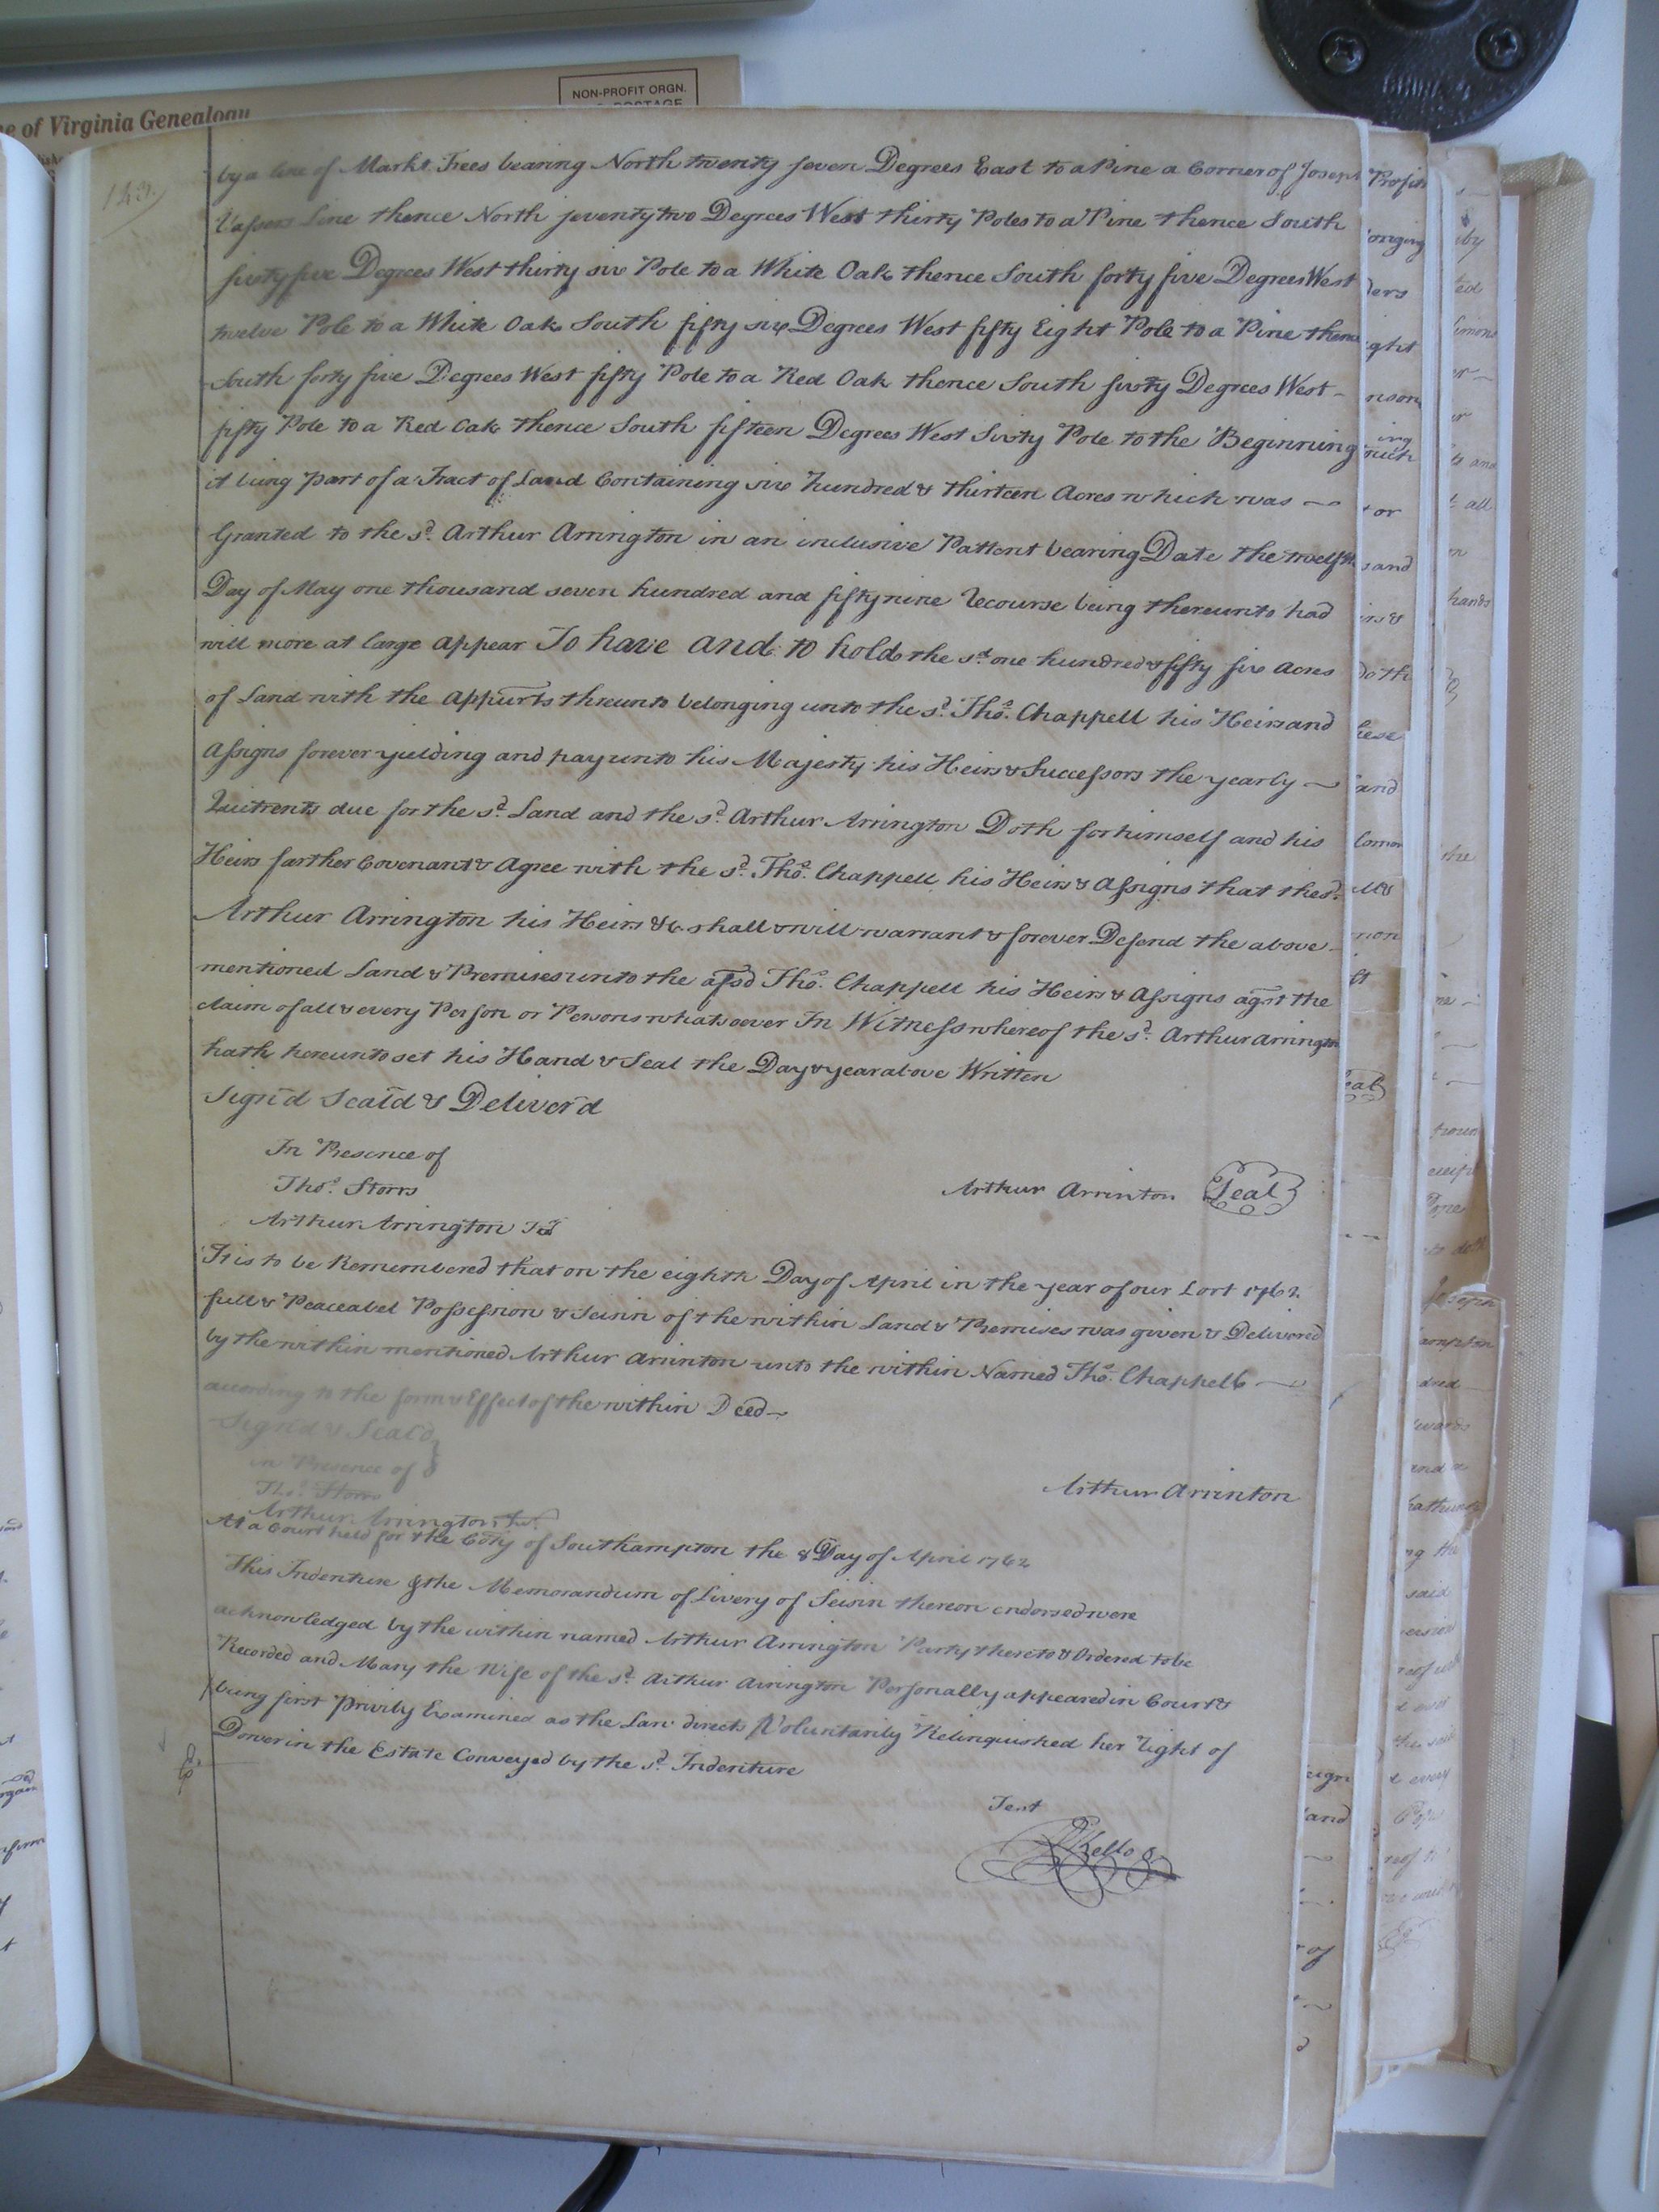 NON-PROFIT ORGN.
POSTAGE
e of Virginia Genealogy
143
by a line of Markt Trees bearing North twenty seven Degrees East to a Pine a Corner of Joseph
Vassers Line thence North seventy two Degrees West thirty Poles to a Pine thence South
sixty five Degrees West thirty six Pole to a White Oak thence South forty five Degrees West
twelve Pole to a White Oak South fifty six Degrees West fifty Eight Pole to a Pine thence
South forty five Degrees West fifty Pole to a Red Oak thence South sixty Degrees West
fifty Pole to a Red Oak thence South fifteen Degrees West Sixty Pole to the Beginning
it being Part of a Tract of Land Containing six hundred & thirteen Acres which was
Granted to the sd. Arthur Arrington in an inclusive Pattent bearing Date the twelfth
Day of May one thousand seven hundred and fifty nine Recourse being thereunto had
will more at large appear To have and to hold the sd. one hundred & fifty six Acres
of Land with the Appurts thereunto belonging unto the sd. Thos. Chappell his Heirs and
Assigns forever yielding and pay unto his Majesty his Heirs & Successors the yearly
Quitrents due for the sd. Land and the sd. Arthur Arrington Doth for himself and his
Heirs farther Covenant & Agree with the sd. Thos. Chappell his Heirs & Assigns that the sd.
Arthur Arrington his Heirs &c. shall & will warrant & forever Defend the above
mentioned Land & Premises unto the afsd Thos. Chappell his Heirs & Assigns agst the
claim of all & every Person or Persons whatsoever In Witness whereof the sd. Arthur Arrington
hath hereunto set his Hand & Seal the Day & year above Written
Sign'd Seal'd & Deliver'd
In Presence of
Thos. Storrs
Arthur Arrinton Seal
Arthur Arrington Jr
It is to be Remembered that on the eighth Day of April in the year of our Lort 1762
full & Peaceabel Possession & Seisin of the within Land & Premises was given & Delivered
by the within mentioned Arthur Arrinton unto the within Named Thos. Chappell
according to the form & Effect of the within Deed
Signed & Seald
in Presence of
Thos. Storrs
Arthur Arrinton
Arthur Arrington Jur.
At a Court held for the Coty of Southampton the 8 Day of April 1762
This Indenture & the Memorandum of Livery of Seisin thereon endorsed were
acknowledged by the within named Arthur Arrington Party thereto & Ordered to be
Recorded and Mary the Wife of the sd. Arthur Arrington Personally appeared in Court &
being first Privily Examined as the Law directs Voluntarily Relinquished her Right of
Dower in the Estate Conveyed by the sd. Indenture
Test
RKello